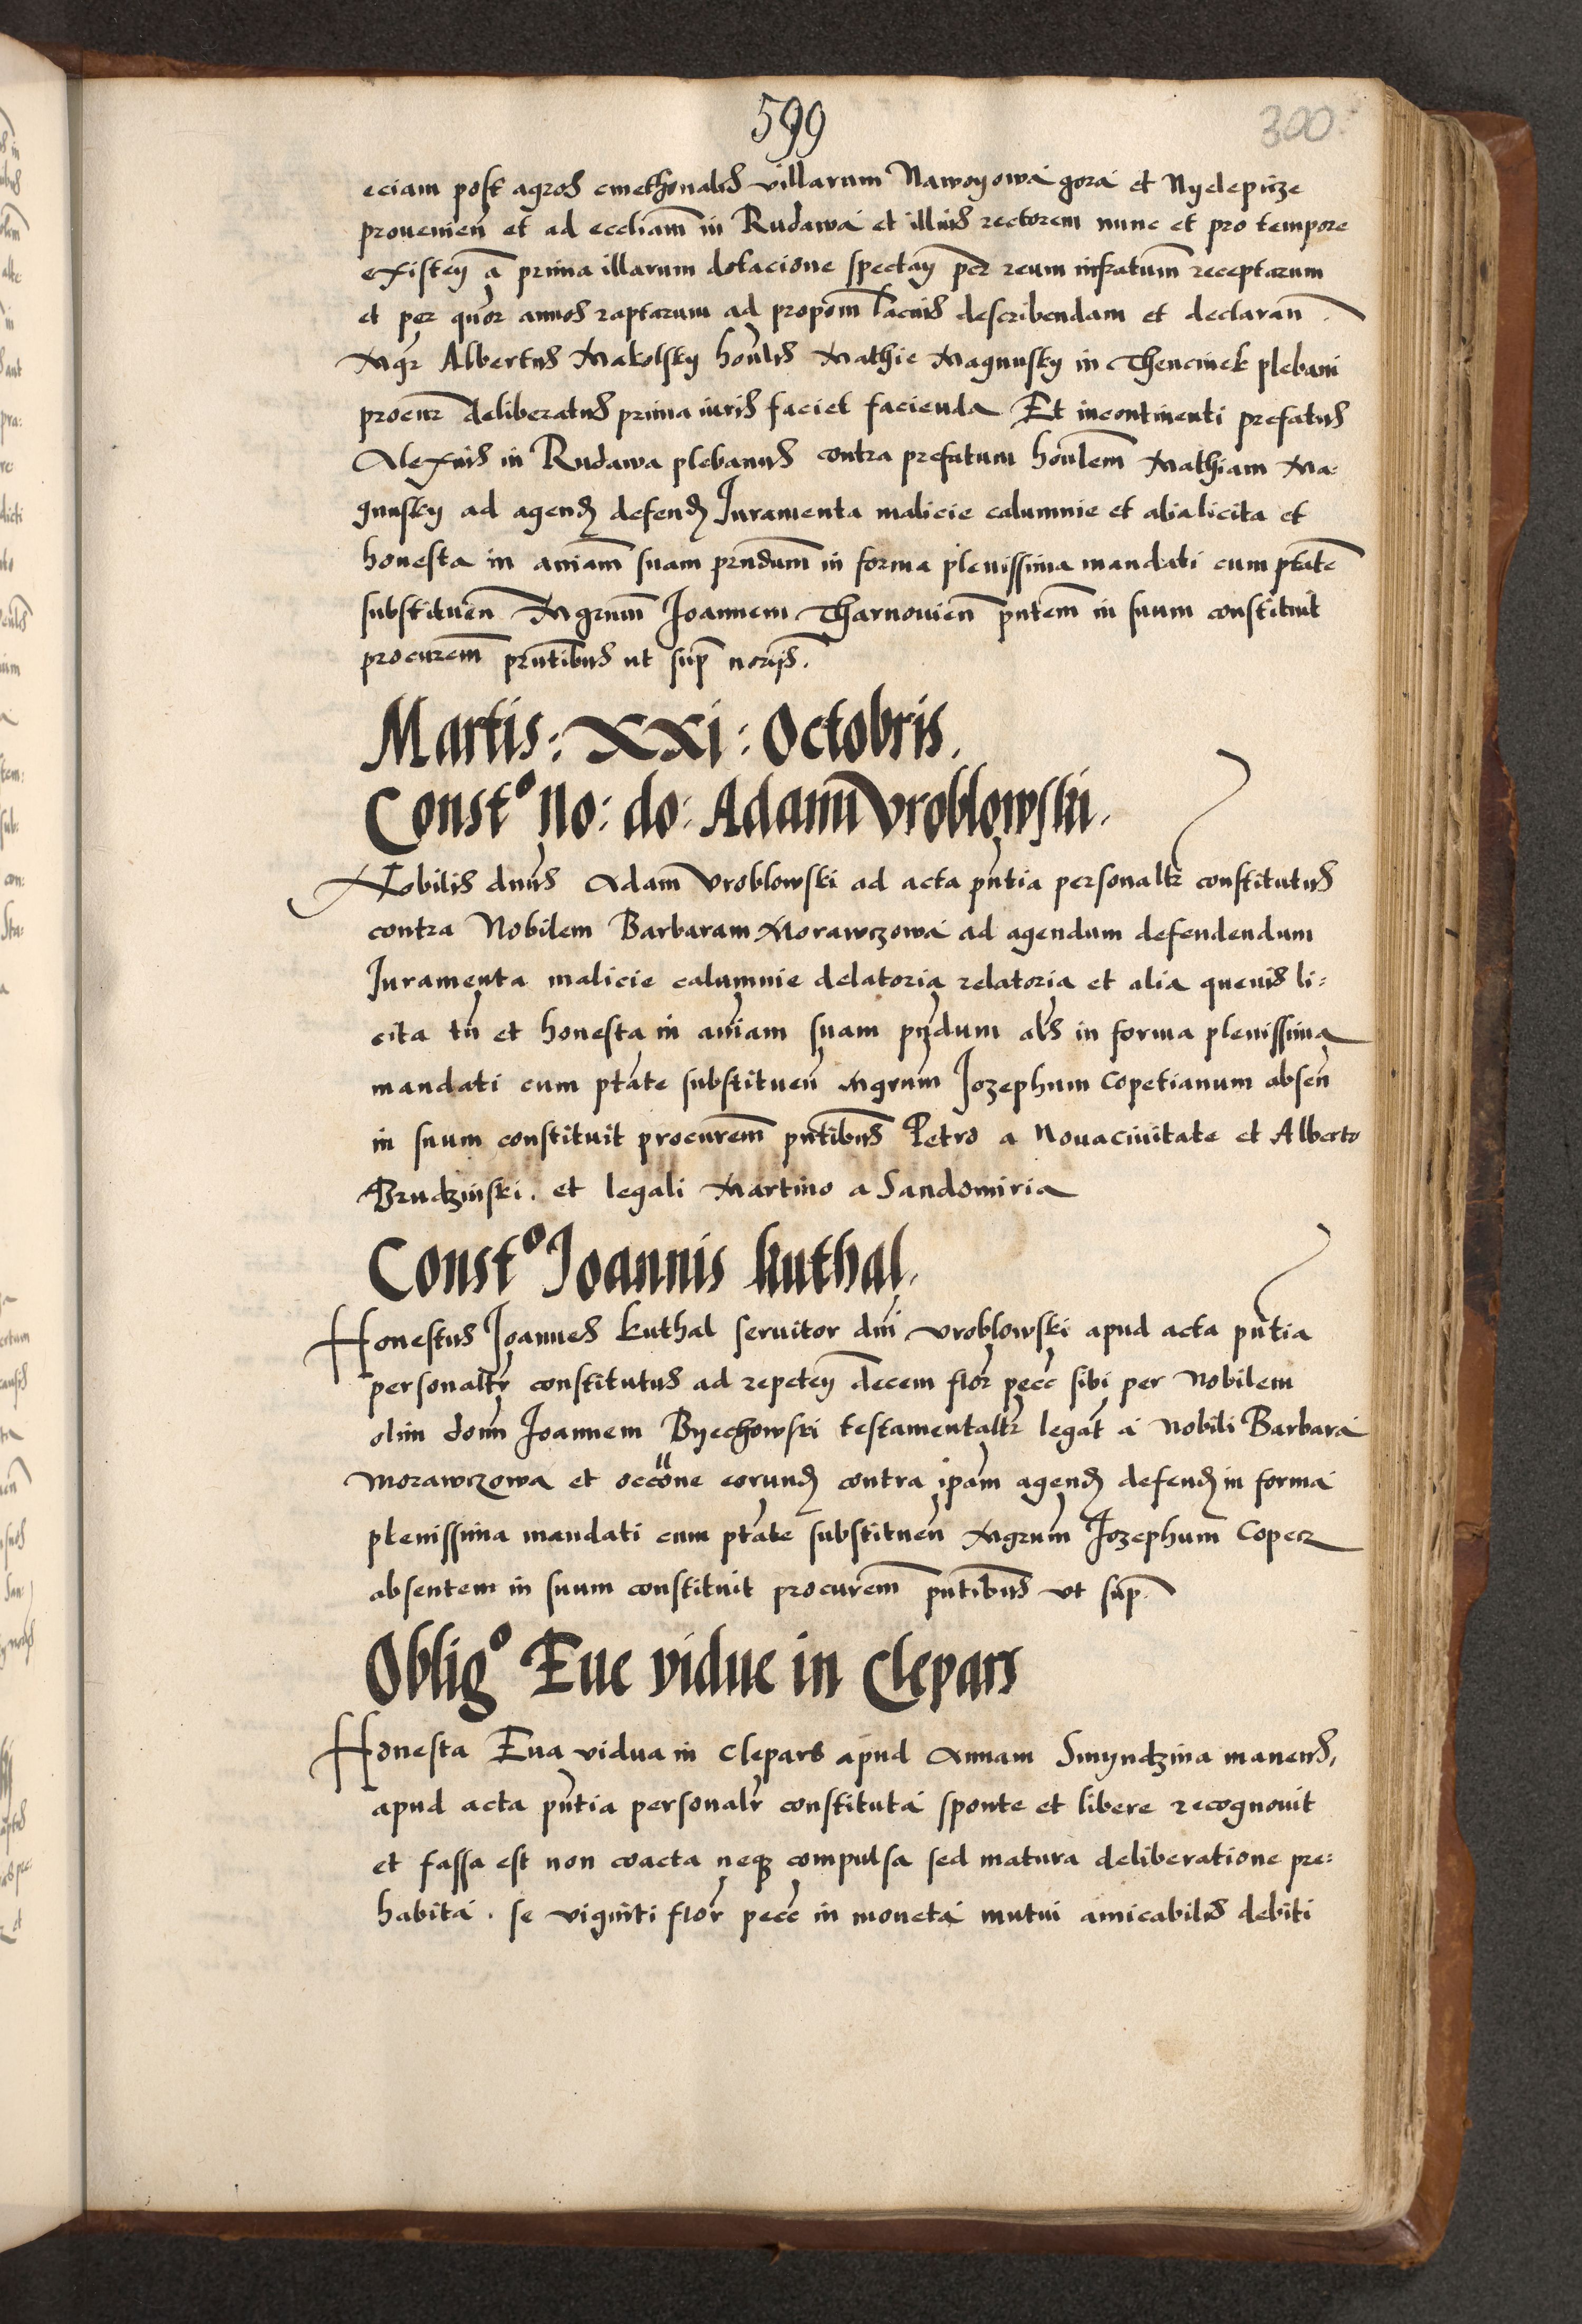 599
300
eciam post agros cmethonales villarum Nawoyowa gora et Nyelepicze
provenien et ad eccliam in Rudawa et illius rectorem nunc et pro tempore
existen a prima illarum dotacione spectan per reum infratum receptarum
et per quor annos raptarum ad propom lacius describendam et declaran.
Mgr Albertus Makolsky honlis Mathie Magnusky in Thencinek plebani
procur deliberatus prima iuris faciet facienda Et incontinenti prefatus
Alexius in Rudawa plebanus contra prefatum honlem Mathiam Ma:
gnusky ad agend defend Juramenta malicie calumnie et alia licita et
honesta in aniam suam prndum in forma plenissima mandati cum ptate
substituen Mgrum Joannem Tharnovien pntem in suum constituit
procurem prntibus ut sup norijs.
Martis: XXI: Octobris.
Const° No: do: Adam Vroblowski.
Nobilis dnus Adam Vroblowski ad acta pntia personaltr constitutus
contra Nobilem Barbaram Morawczowa ad agendum defendendum
Juramenta malicie calumnie delatoria relatoria et alia quevis li:
cita tn et honesta in aniam suam pndum als in forma plenissima
mandati cum ptate substituen Mgrum Jozephum Copetianum absen
in suum constituit procurem pntibus Petro a Novacivitate et Alberto
Brudzinski. et legali Martino a Sandomiria
Const° Joannis kuthal.
Honestus Joannes kuthal servitor dni Vroblowski apud acta pntia
personaltr constitutus ad repeten decem flor pecc sibi per Nobilem
olim donn Joannem Byechowski testamentaltr legat a Nobili Barbara
Morawczowa et occone eorund contra ipam agend defend in forma
plenissima mandati cum ptate substituen Mgrum Jozephum Copecz
absentem in suum constituit procurem pntibus ut sup.
Oblig° Eve vidue in Clepars
Honesta Eva vidua in Clepars apud Annam Smyndzina manens,
apud acta pntia personalr constituta sponte et libere recognovit
et fassa est non coacta neq compulsa sed matura deliberatione pre:
habita. se viginti flor pecc in moneta mutui amicabilis debiti